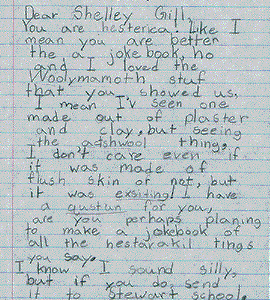 Dear Shelley Gill,
You are hesterical! Like I
mean you are better
the a joke book, ho
and I loved the
Woolymamoth stuf
that you showed us,
I mean I'v seen one
made out of plaster
and clay, but seeing
the ,adshwool thing,
I don't care even if
it was made of
flush skin or not, but
it was exsiding! I have
a qustun for you,
are you perhaps planing
to make a jokebook of
all the hestarakil tings
you say.
I know I sound silly,
but if you do, send
it to Stewart School.